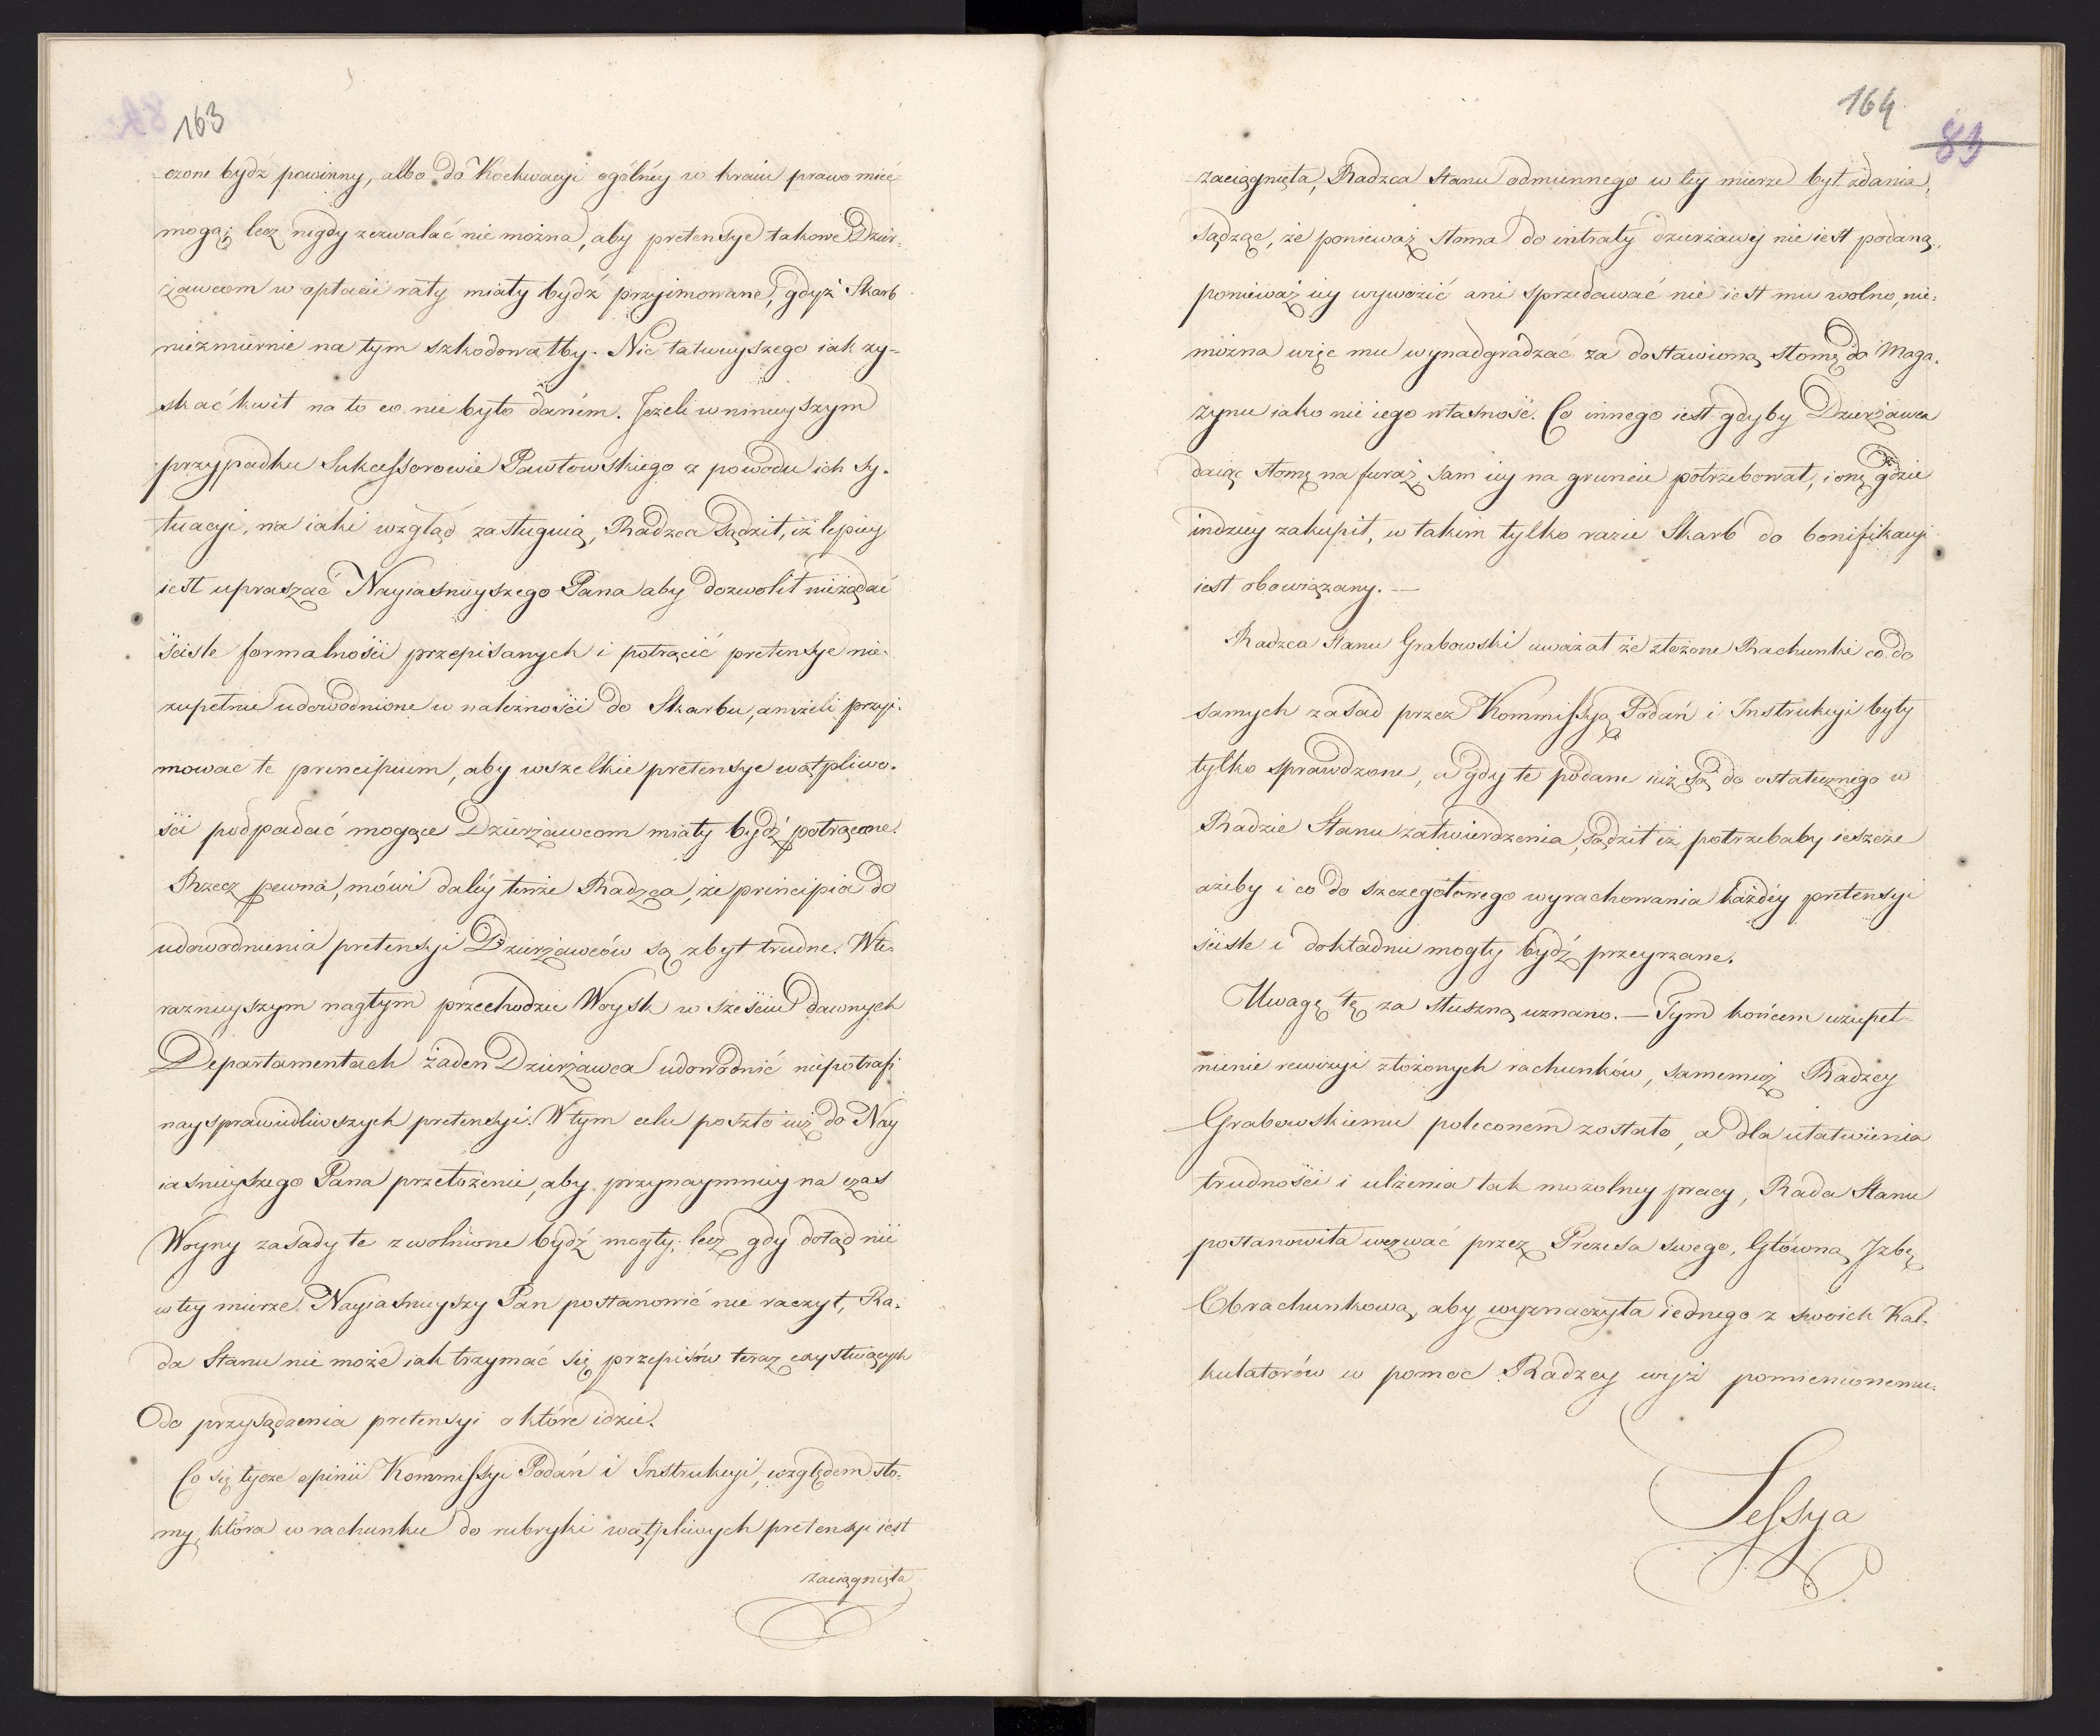 163
czone bydź powinny, albo do Koekwacyi ogólnéy w kraiu prawo mieć
mogą; lecz nigdy zezwalać nie można, aby pretensye takowe Dzier-
żawcom w opłacie raty miały bydź przyimowane, gdyż Skarb
niezmiernie na tym szkodowałby. Nic łatwieyszego iak zy-
skać kwit na to co nie było daném. Jeżeli w ninieyszym
przypadku Sukcessorowie Pawłowskiego z powodu ich sy-
tuacyi, na iaki wzgląd zasługuią, Radzca sądził, iż lepiey
iest upraszać Nayiaśnieyszego Pana aby dozwolił nieżądać
ściśle formalności przepisanych i potrącić pretensye nie-
zupełnie udowodnione w należności do Skarbu, aniżeli przyi-
mować te principium, aby wszelkie pretensye wątpliwo-
ści podpadać mogące Dzierżawcom miały bydź potrącone.
Rzecz pewna, mówi daléy tenże Radzca, że principia do
udowodnienia pretensyi Dzierżawców są zbyt trudne. W te-
raznieyszym nagłym przechodzie Woysk w sześciu dawnych
Departamentach żaden Dzierżawca udowodnić niepotrafi
naysprawiedliwszych pretensyi. W tym celu poszło iuż do Nay
iaśnieyszego Pana przełożenie, aby przynaymniey na czas
Woyny zasady te zwolnione bydź mogły; lecz gdy dotąd nie
w tey mierze Nayiaśnieyszy Pan postanowić nie raczył, Ra-
da Stanu nie może iak trzymać się przepisów teraz exystuiących
do przysądzenia pretensyi o które idzie.
Co się tycze opinii Kommissyi Podań i Instrukcyi, względem sło-
my, która w rachunku do rubryki wątpliwych pretensyi iest
zaciągnięta
164
83
zaciągnięta, Radzca Stanu odmiennego w tey mierze był zdania,
sądząc, że ponieważ słoma do intraty dzierżawy nie iest podaną,
ponieważ iey wywozić ani sprzedawać nie iest mu wolno, nie-
można więc mu wynadgradzać za dostawioną słomę do Maga-
zynu iako nie iego własność. Co innego iest gdyby Dzierżawca
daiąc słomę na furaż, sam iey na gruncie potrzebował, i onę gdzie
indziey zakupił, w takim tylko razie Skarb do bonifikacyi
iest obowiązany. —
Radzca Stanu Grabowski uważał że złożone Rachunki co do
samych zasad przez Kommissyą Podań i Instrukcyi były
tylko sprawdzone, a gdy te podane iuż są do ostatecznego w
Radzie Stanu zatwierdzenia, sądził iż potrzebaby ieszcze
ażeby i co do szczegółowego wyrachowania każdéy pretensyi
ściśle i dokładnie mogły bydź przeyrzane.
Uwagę tę za słuszną uznano. — Tym końcem uzupeł-
nienie rewizyi złożonych rachunków, samemuż Radzcy
Grabowskiemu poleconem zostało, a dla ułatwienia
trudności i ulżenia tak mozolney pracy, Rada Stanu
postanowiła wezwać przez Prezesa swego, Główną Izbę
Obrachunkową, aby wyznaczyła iednego z swoich Kal-
kulatorów w pomoc Radzcy wyż pomienionemu.
Sessya